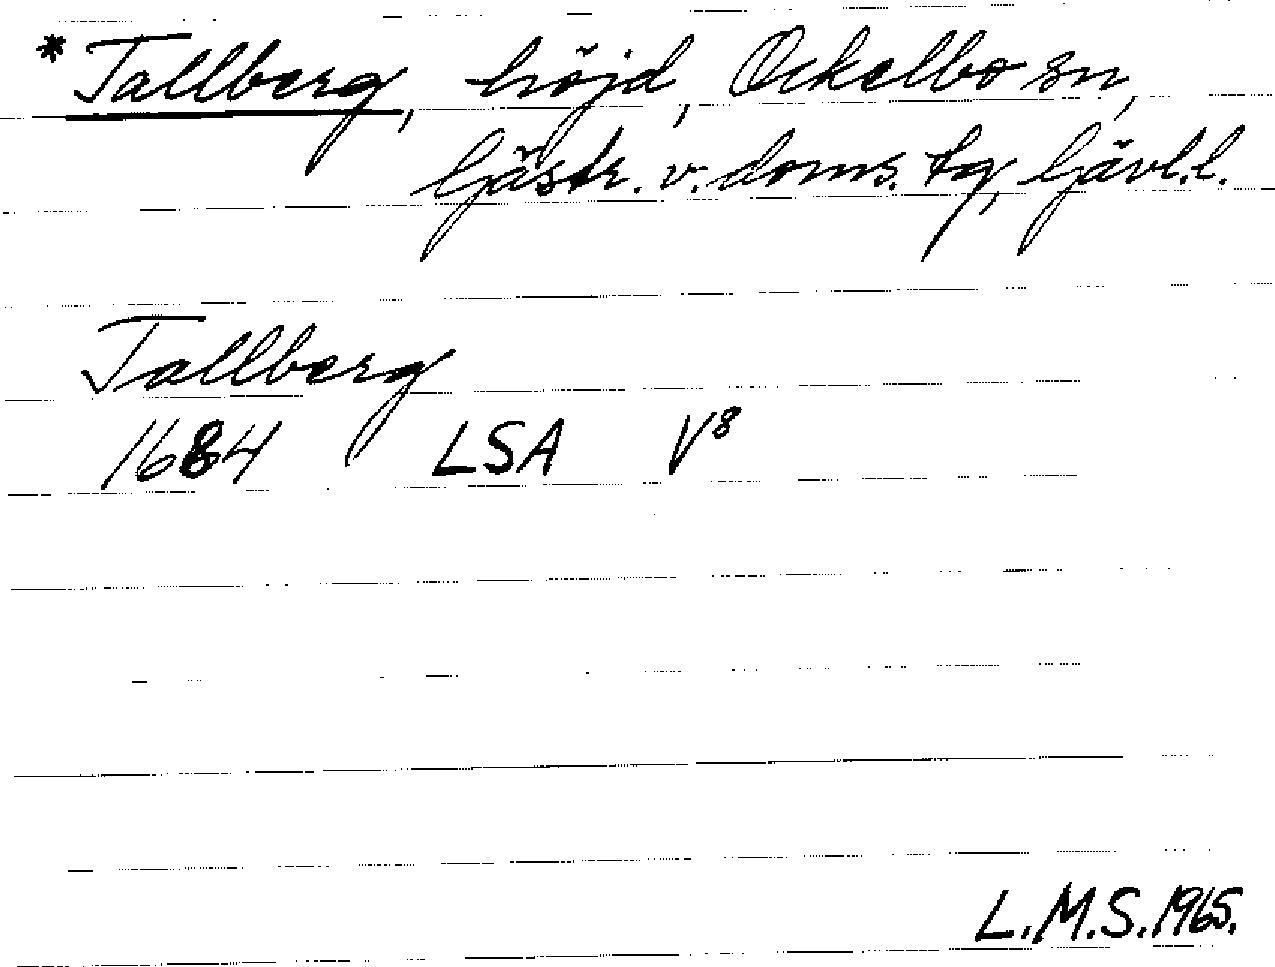 *Tallberg, höjd, Ockelbo sn,
Gästr. v. doms. tg, Gävl.l.
Tallberg
1684 LSA V8
L.M.S. 1965.